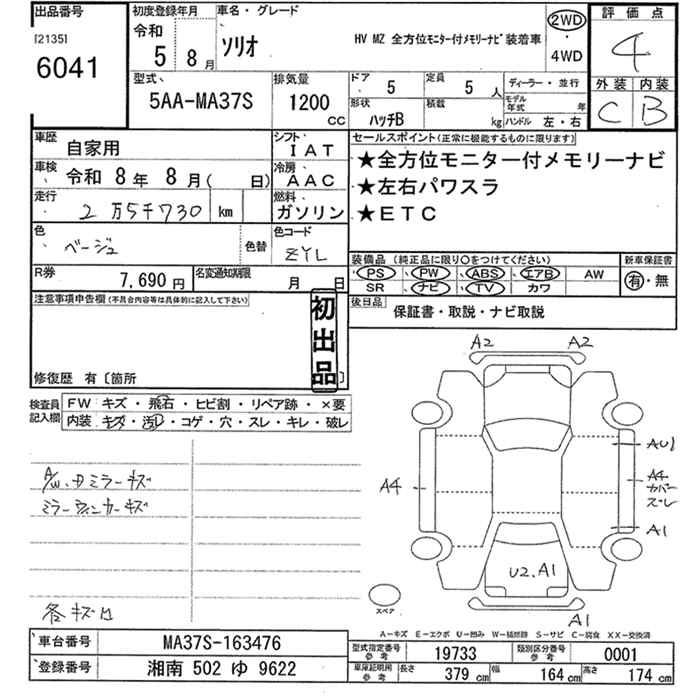 出品番号
[2135]
6041
初度登録年月
令和
5 8月
車名・グレード
ソリオ
HV MZ 全方位モニター付メモリーナビ装着車
2WD
・
4WD
評価点
4
外装 内装
C B
型式
5AA-MA37S
排気量
1200
cc
ドア 5
定員 5 人
形状 ハッチB
積載 kg
ディーラー・並行
モデル年式 年
ハンドル 左・右
車歴 自家用
シフト IAT
車検 令和 8年 8月( 日)
冷房 AAC
走行 2万5千730 km
燃料 ガソリン
色 ベージュ
色替
色コード ZYL
R券 7,690円
名変通知期限 月 日
セールスポイント(正常に機能するものに限ります)
★全方位モニター付メモリーナビ
★左右パワスラ
★ETC
装備品 (純正品に限り○をつけてください)
PS PW ABS エアB AW
SR ナビ TV カワ
新車保証書
有・無
後日品 保証書・取説・ナビ取説
注意事項申告欄(不具合内容等は具体的に記入して下さい)
初出品
修復歴 有〔箇所 〕
検査員記入欄
FW キズ・飛石・ヒビ割・リペア跡・×要
内装 キズ・汚レ・コゲ・穴・スレ・キレ・破レ
A/W、ドミラーキズ
ミラーウィンカーキズ
各キズ凹
A2 A2
AU1
A4
A4
カバー
ズレ
A1
U2.A1
A1
スペア
A−キズ E−エクボ U−凹み W−補修跡 S−サビ C−腐食 XX−交換済
車台番号 MA37S-163476
登録番号 湘南 502 ゆ 9622
型式指定番号 参考 19733
類別区分番号 参考 0001
車庫証明用 参考 長さ 379 cm 幅 164 cm 高さ 174 cm